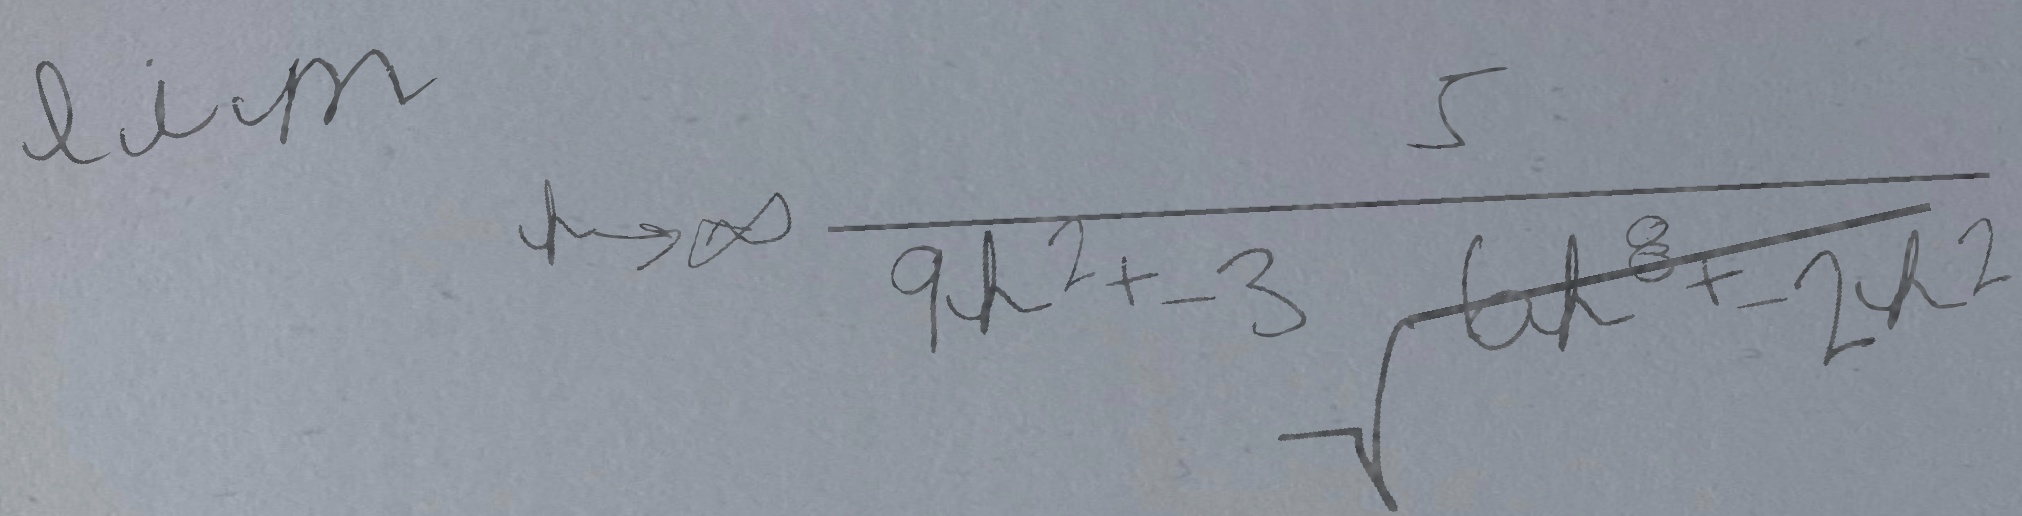 lim h→∞ 5 / (9h² + -3 √(6h⁸ + -2h²))